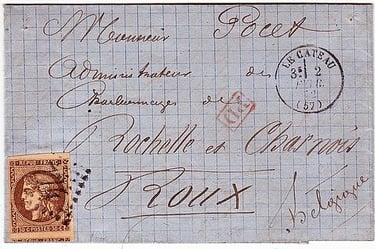 Monsieur Pocet
Administrateur des
Charbonnages de
Rochelle et Charnois
Roux
Belgique
LE CATEAU
3E 2
(57)
PD
REPUB. FRANC.
30 C. POSTES 30 C.